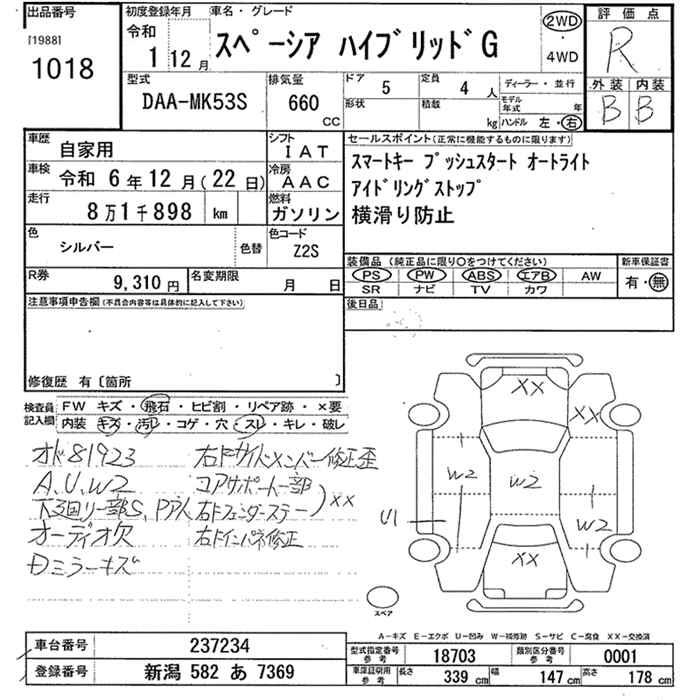 出品番号
[1988]
1018
初度登録年月
令和
1 12月
車名・グレード
スペーシア ハイブリッドG
2WD
・
4WD
評価点
R
外装 内装
B B
型式
DAA-MK53S
排気量
660
CC
ドア
5
形状
定員
4 人
積載
kg
ディーラー・並行
モデル年式 年
ハンドル 左・右
車歴
自家用
シフト
IAT
車検
令和 6年12月(22日)
冷房
AAC
走行
8万1千898 km
燃料
ガソリン
色
シルバー
色替
色コード
Z2S
R券
9,310円
名変期限
月 日
セールスポイント(正常に機能するものに限ります)
スマートキー プッシュスタート オートライト
アイドリングストップ
横滑り防止
装備品(純正品に限り○をつけてください)
PS PW ABS エアB AW
SR ナビ TV カワ
新車保証書
有・無
後日品
注意事項申告欄(不具合内容等は具体的に記入して下さい)
修復歴 有〔箇所 〕
検査員記入欄
FW キズ・飛石・ヒビ割・リペア跡・×要
内装 キズ・汚レ・コゲ・穴・スレ・キレ・破レ
オド81923
A、U、W2
下回リ一部S、Pアト
オーディオ欠
Dミラーキズ
右ドサイドメンバー修正歪
コアサポート一部
右ドフェンダーステー
)××
右ドインパネ修正
XX
XX
W2
W2
W2
U1
XX
スペア
A-キズ E-エクボ U-凹み W-補修跡 S-サビ C-腐食 XX-交換済
車台番号
237234
登録番号
新潟 582 あ 7369
型式指定番号
参考
18703
類別区分番号
参考
0001
車庫証明用
参考
長さ
339 cm
幅
147 cm
高さ
178 cm